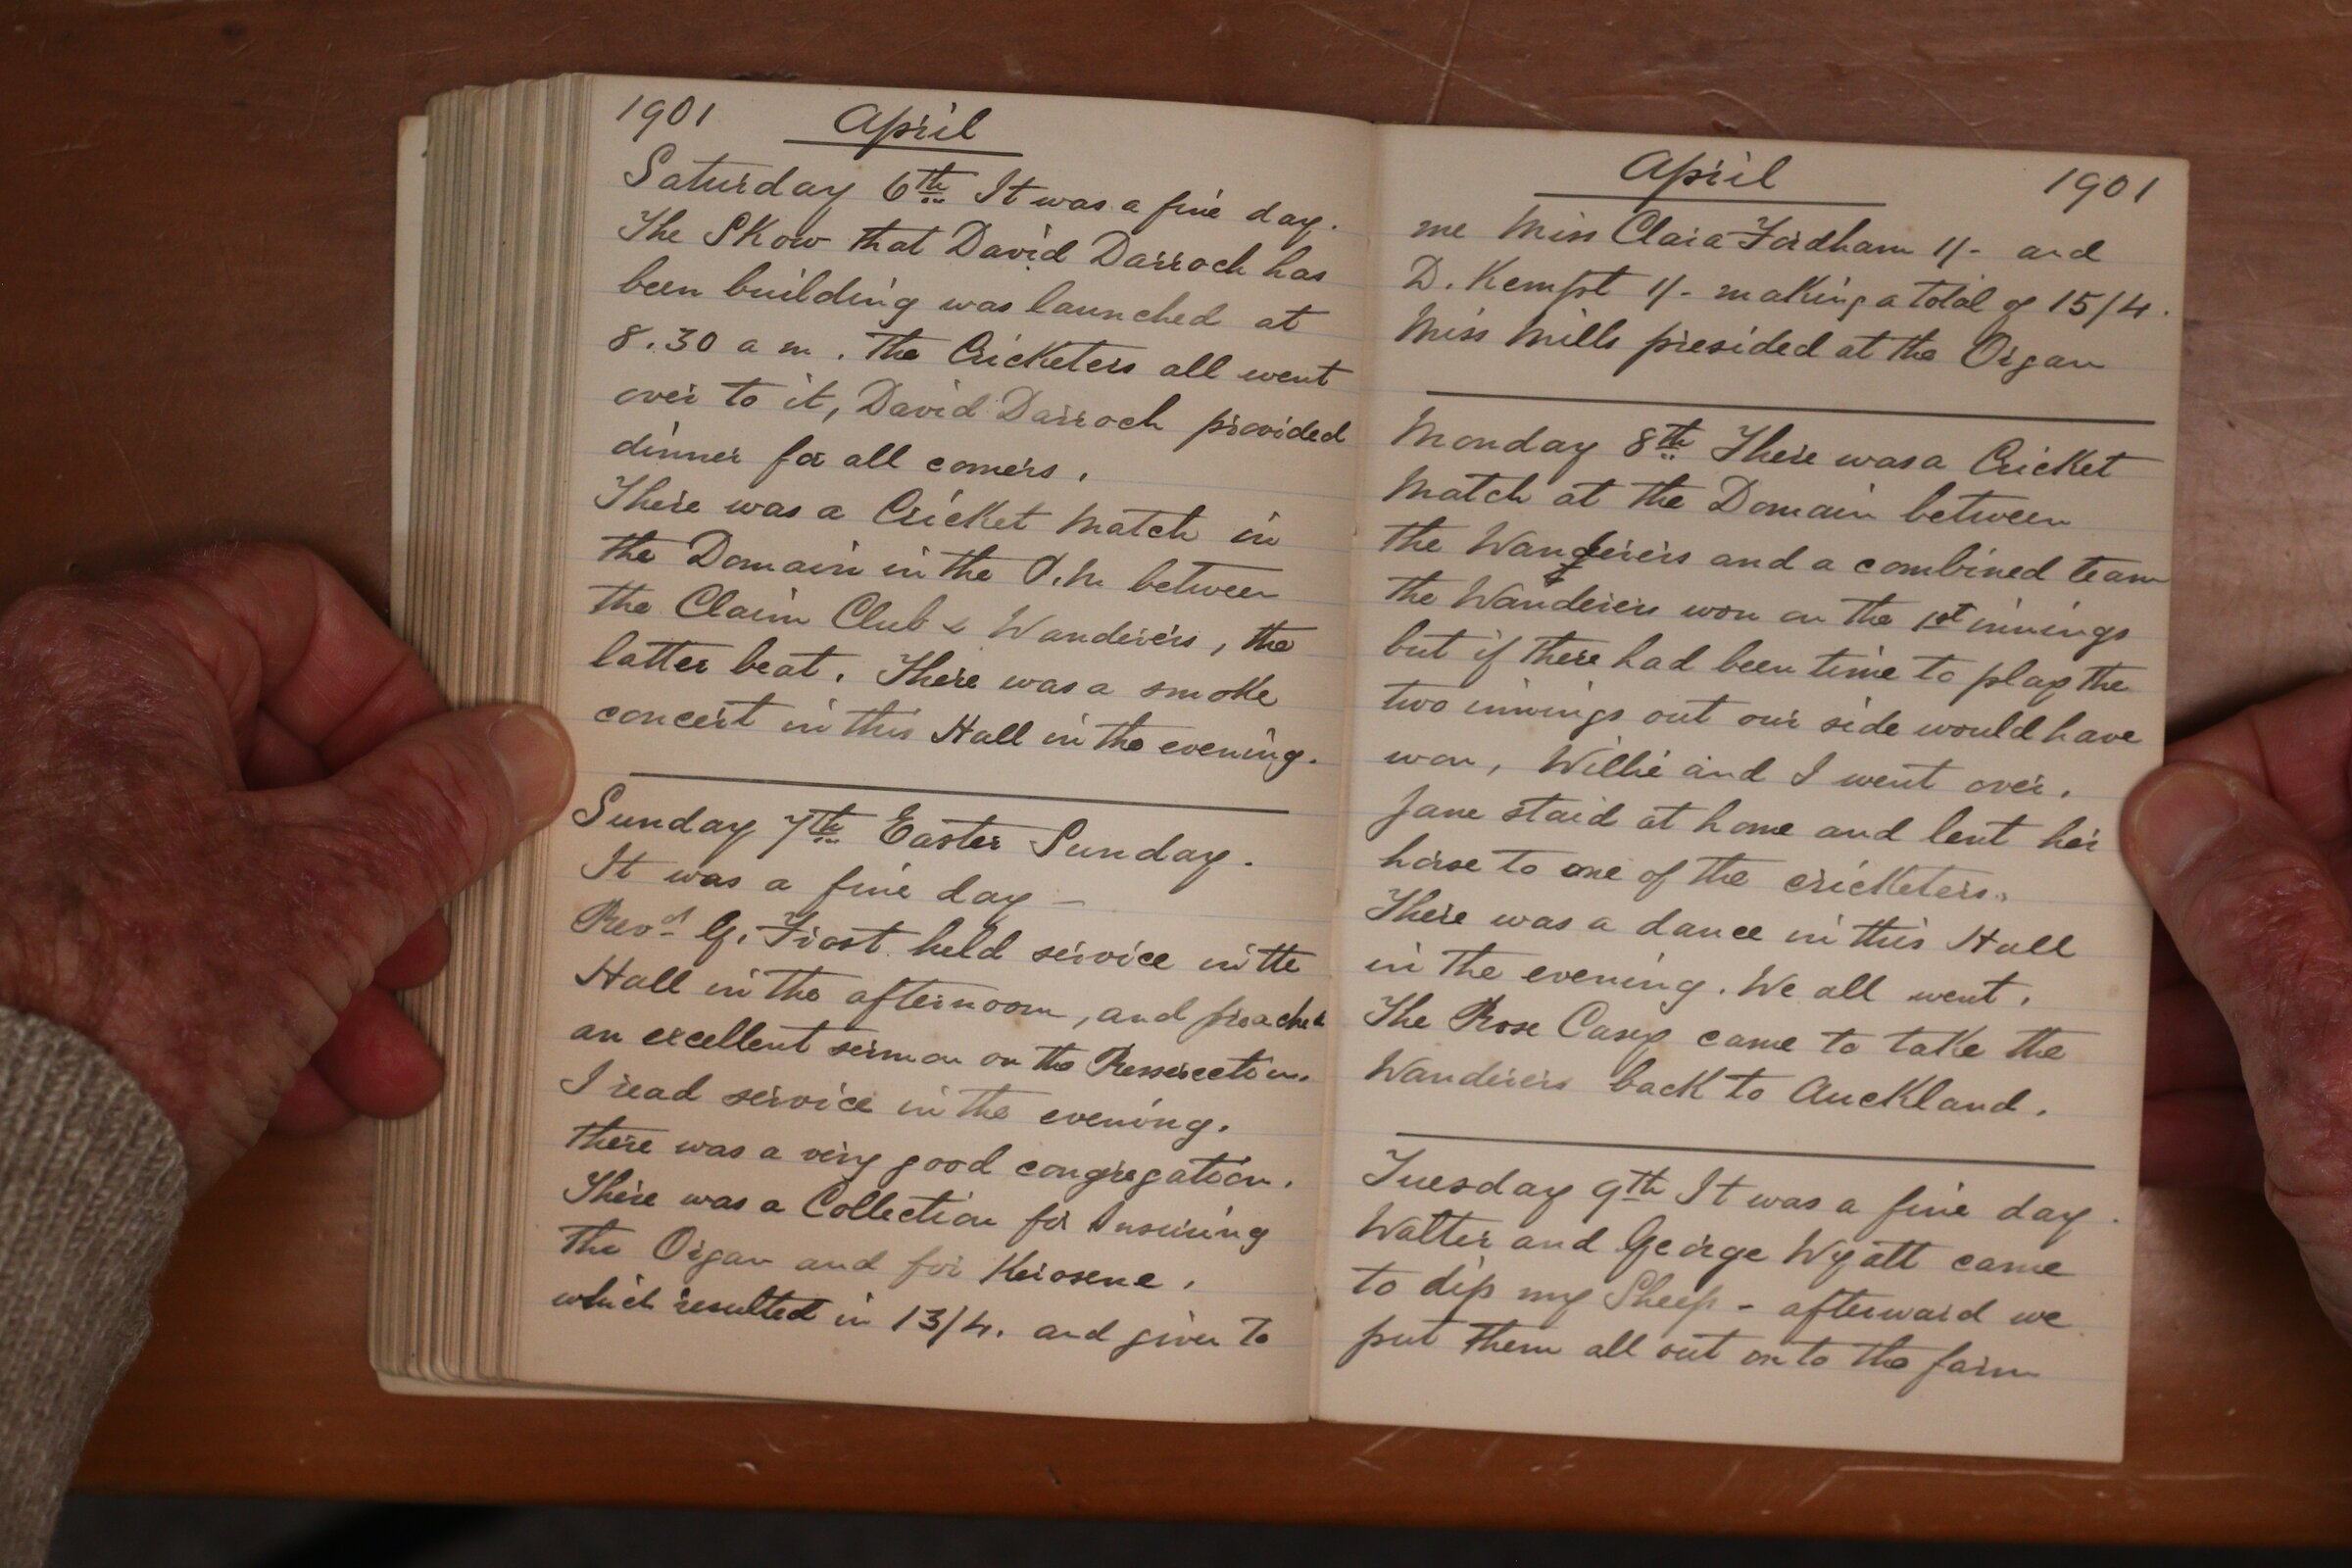 1901 April
Saturday 6th It was a fine day.
The Skow that David Darroch has
been building was launched at
8.30 a m. The Cricketers all went
over to it, David Darroch provided
dinner for all comers.
There was a Cricket Match in
the Domain in the P.M between
the Claim Club & Wanderers, the
latter beat. There was a smoke
concert in this Hall in the evening.
Sunday 7th Easter Sunday.
It was a fine day –
Revd G. Frost held service in the
Hall in the afternoon, and preached
an excellent sermon on the Ressurection.
I read service in the evening.
There was a very good congregation.
There was a Collection for Insuring
the Organ and for Kerosene.
which resulted in 13/4. and given to
April 1901
me Miss Clara Fordham 1/- and
D. Kempt 1/- making a total of 15/4.
Miss Mills presided at the Organ
Monday 8th There was a Cricket
Match at the Domain between
the Wanderers and a combined team
the Wanderers won on the 1st innings
but if there had been time to play the
two innings out our side would have
won, Willie and I went over.
Jane staid at home and lent her
horse to one of the cricketers.
There was a dance in this Hall
in the evening. We all went.
The Rose Casey came to take the
Wanderers back to Auckland.
Tuesday 9th It was a fine day.
Walter and George Wyatt came
to dip my Sheep - afterward we
put them all out on to the farm